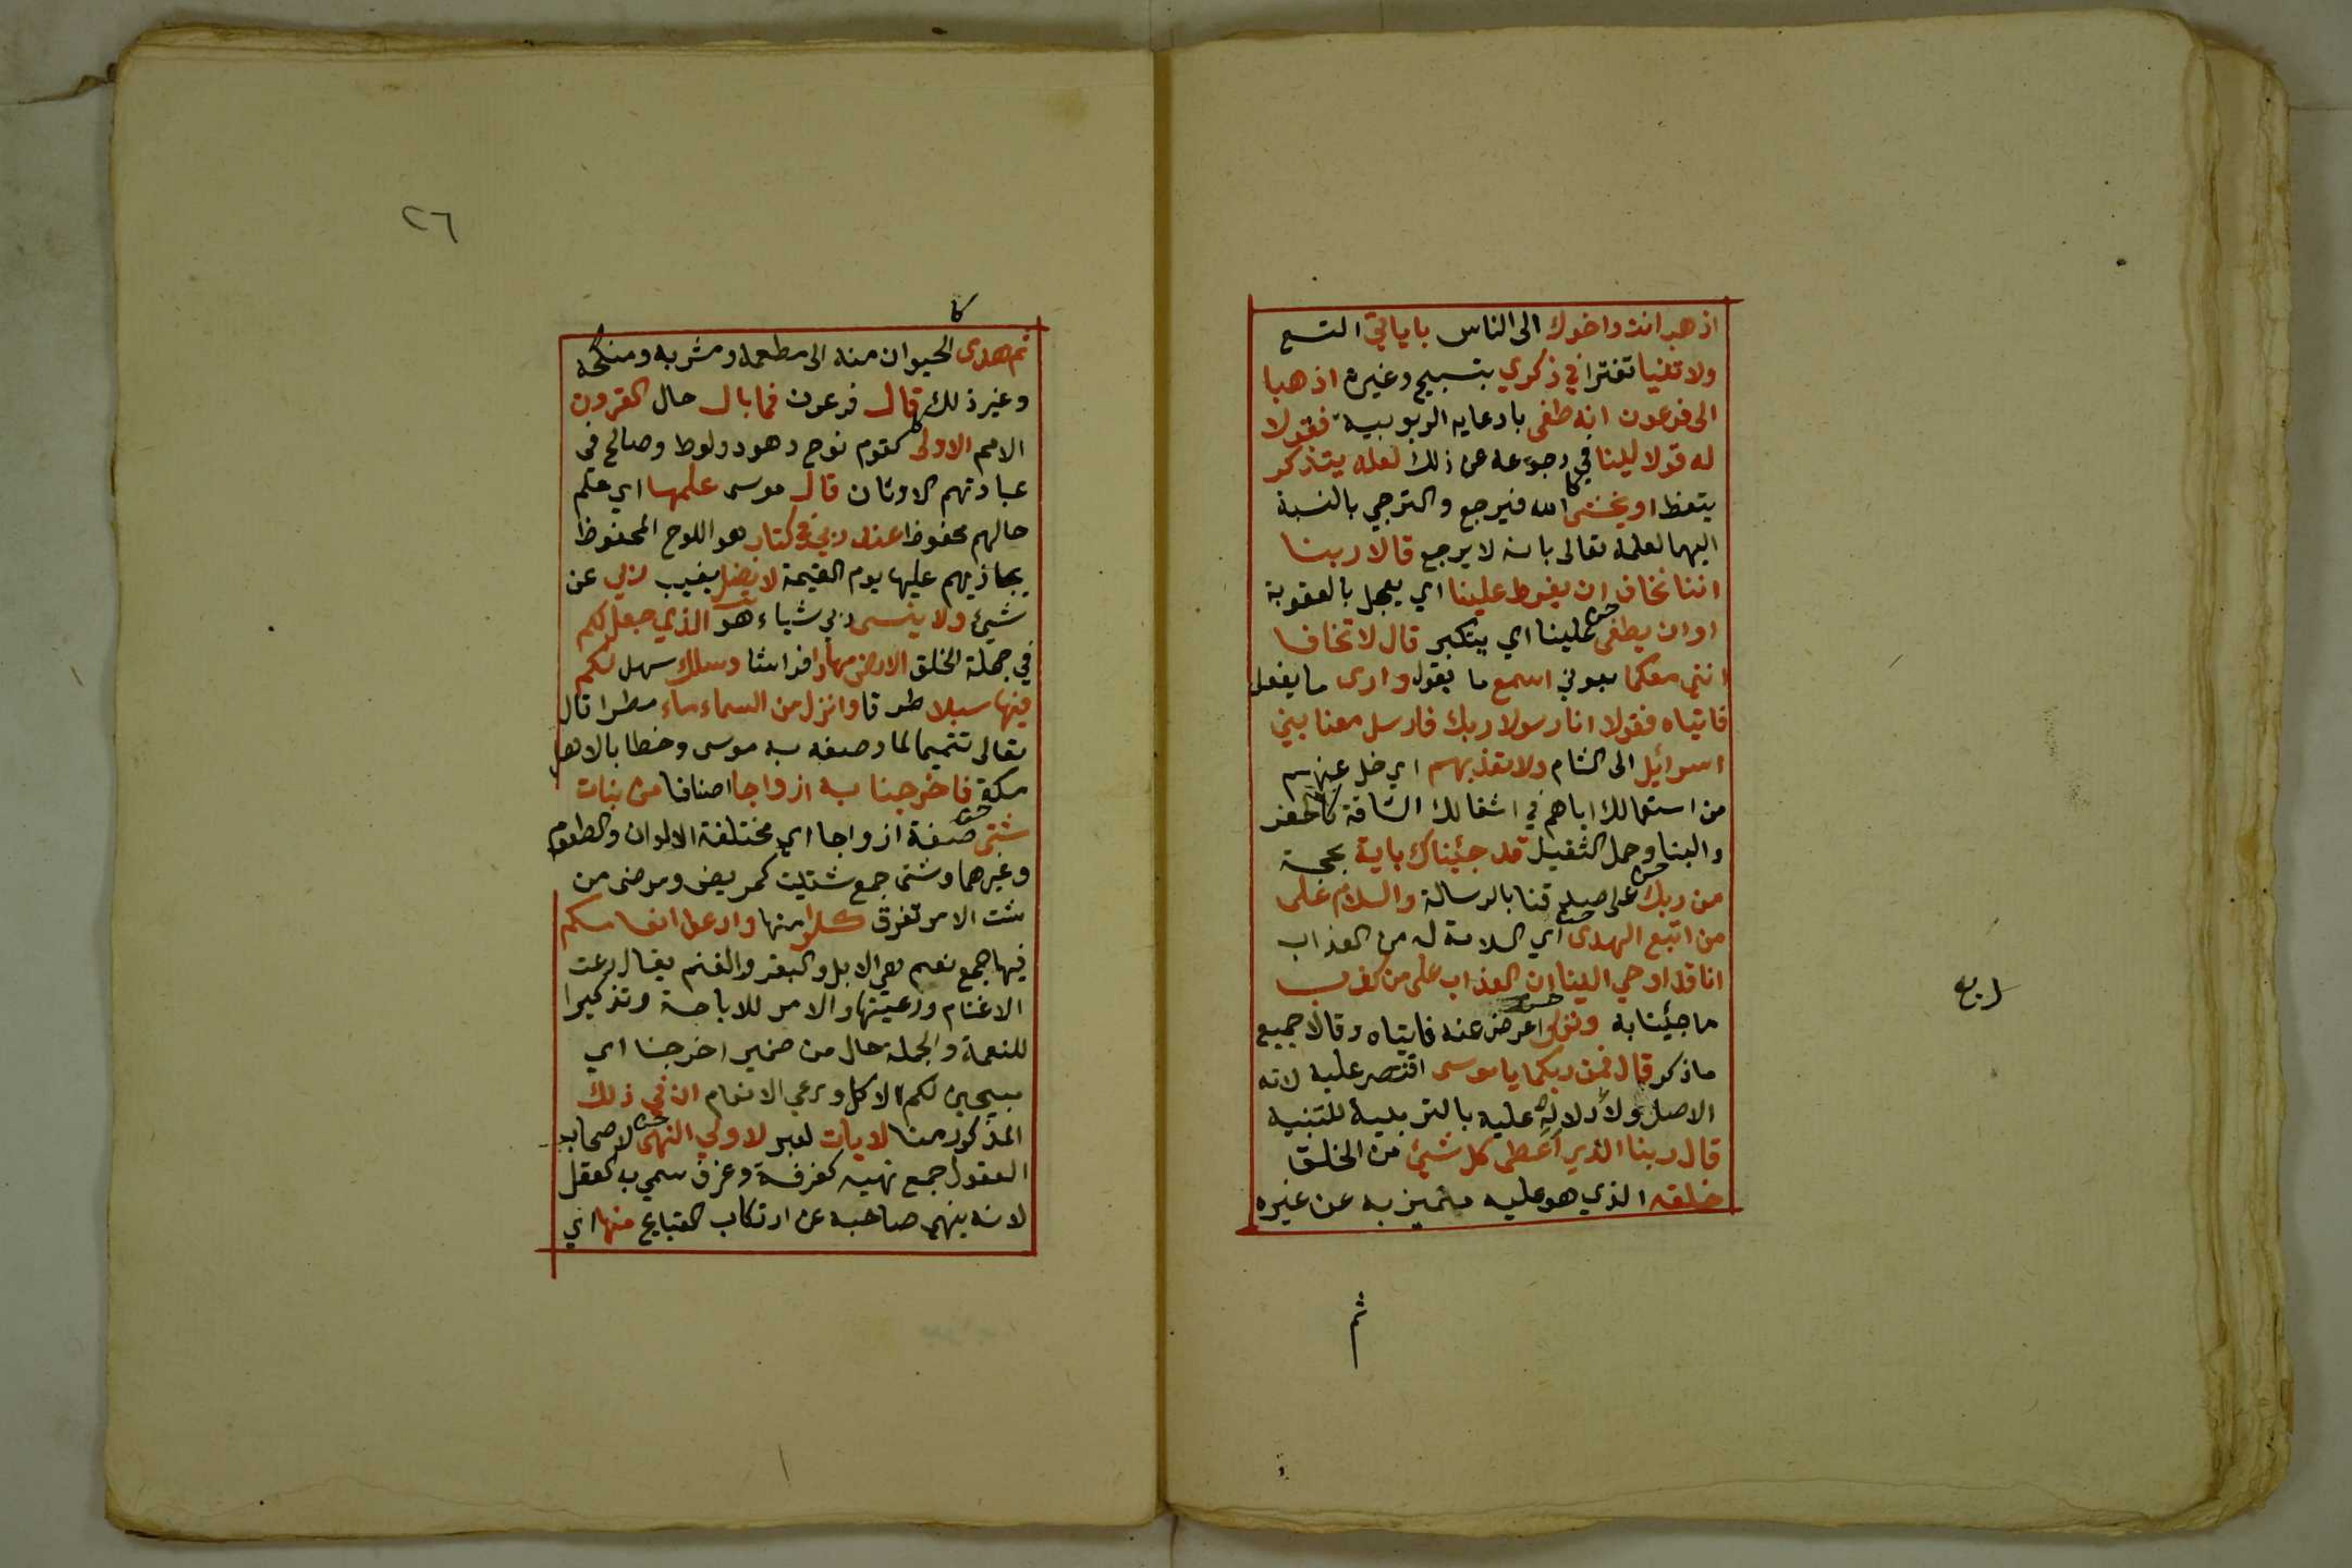 اذهب انت واخوك الى الناس باياتي التسع
ولا تنيا تفترا في ذكري بتسبيح وغيره اذهبا
الى فرعون انه طغى بادعايه الربوبية فقولا
له قولا لينا في رجوعه عن ذلك لعله يتذكر
يتعظ او يخشى الله فيرجع والترجي بالنسبة
اليهما لعلمه تعالى بانه لا يرجع قالا ربنا
اننا نخاف ان يفرط علينا اي يعجل بالعقوبة
او ان يطغى علينا اي يتكبر قال لا تخافا
انني معكما بعوني اسمع ما يقول وارى ما يفعل
فاتياه فقولا انا رسولا ربك فارسل معنا بني
اسرائيل الى الشام ولا تعذبهم اي خل عنهم
من استعمالك اياهم في اشغالك الشاقة كالحفر
والبنا وحمل الثقيل قد جئناك باية بحجة
من ربك على صدقنا بالرسالة والسلام على
من اتبع الهدى اي السلامة له من العذاب
انا قد اوحي الينا ان العذاب على من كذب
ما جئنا به وتولى اعرض عنه فاتياه وقالا جميع
ما ذكر قال فمن ربكما يا موسى اقتصر عليه لانه
الاصل ولا دلاله عليه بالتربية للتبنيه
قال ربنا الذي اعطى كل شيئ من الخلق
خلقه الذي هو عليه متميز به عن غيره
ثم
ربع
٢٦
كا
ثم هدى الحيوان منه الى مطعمه ومشربه ومنكحه
وغير ذلك قال فرعون فما بال حال القرون
الامم الاولى كقوم نوح وهود ولوط وصالح في
عبادتهم الاوثان قال موسى علمها اي علم
حالهم محفوظ عند ربي في كتاب هو اللوح المحفوظ
يجازيهم عليها يوم القيمة لا يضل يغيب ربي عن
شيئ ولا ينسى ربي شياء هو الذي جعل لكم
في جملة الخلق الارض مهادا فراشا وسلك سهل لكم
فيها سبلا طرقا وانزل من السماء ماء مطرا قال
تعالى تتميما لما وصفه به موسى وخطابا لاهل
مكة فاخرجنا به ازواجا اصنافا من نبات
شتى صفة ازواجا اي مختلفة الالوان والطعوم
وغيرهما وشتى جمع شتيت كمريض ومرضى من
شت الامر تفرق كلوا منها وارعوا انعامكم
فيها جمع نعم هي الابل والبقر والغنم يقال رعت
الاغنام ورعيتها والامر للاباحة وتذكيرا
للنعمة والجملة حال من ضمير اخرجنا اي
مبيحين لكم الاكل ورعي الانعام ان في ذلك
المذكور منا لايات لعبر لاولي النهى لاصحاب
العقول جمع نهيه كغرفة وغرف سمي به العقل
لانه ينهى صاحبه عن ارتكاب القبايح منها اي